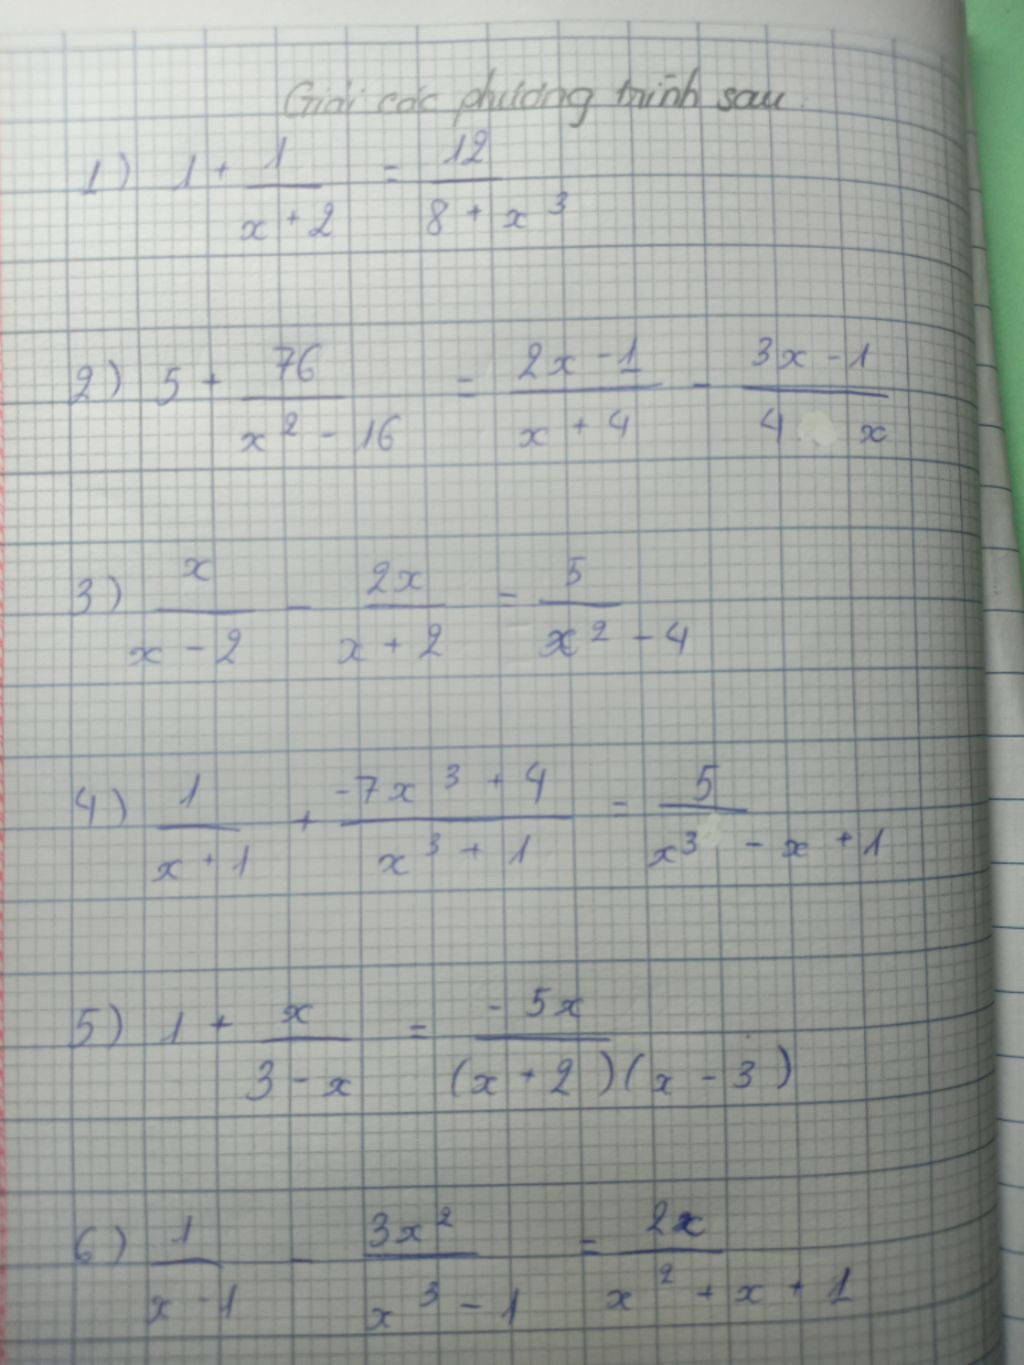 Giải các phương trình sau.
1) 1 + 1/(x + 2) = 12/(8 + x³)
2) 5 + 76/(x² - 16) = (2x - 1)/(x + 4) - (3x - 1)/(4 x)
3) x/(x - 2) - 2x/(x + 2) = 5/(x² - 4)
4) 1/(x + 1) + (-7x³ + 4)/(x³ + 1) = 5/(x³ - x + 1)
5) 1 + x/(3 - x) = -5x/((x + 2)(x - 3))
6) 1/(x - 1) - 3x²/(x³ - 1) = 2x/(x² + x + 1)